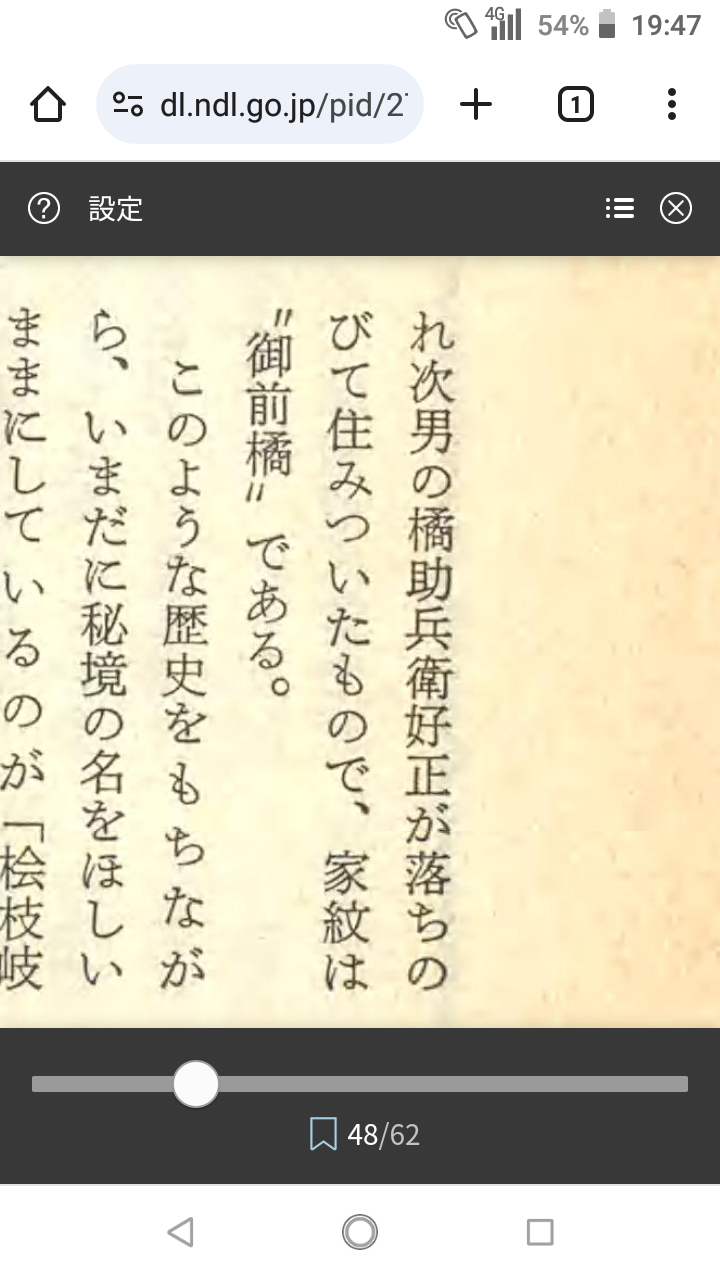 4G 54% 19:47
dl.ndl.go.jp/pid/2
1
? 設定
れ次男の橘助兵衛好正が落ちの
びて住みついたもので、家紋は
〃御前橘〃である。
このような歴史をもちなが
ら、いまだに秘境の名をほしい
ままにしているのが「桧枝岐
48/62